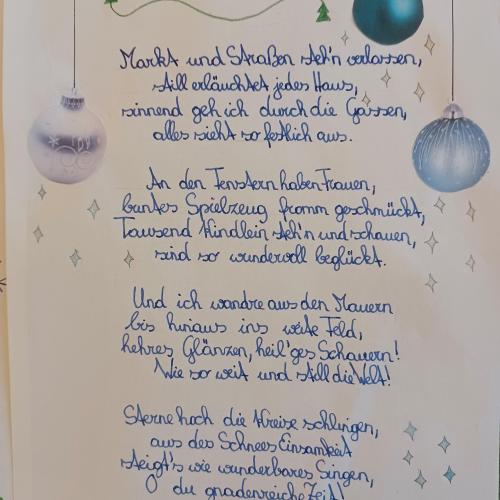 Markt und Straßen steh'n verlassen,
still erläuchtet jedes Haus,
sinnend geh ich durch die Gassen,
alles sieht so festlich aus.
An den Fenstern haben Frauen,
buntes Spielzeug fromm geschmückt,
Tausend Kindlein steh'n und schauen,
sind so wundervoll beglückt.
Und ich wandre aus den Mauern
bis hinaus ins weite Feld,
hehres Glänzen, heil'ges Schauern!
Wie so weit und still die Welt!
Sterne hoch die Kreise schlingen,
aus des Schnees Einsamkeit
steigt's wie wunderbares Singen,
du gnadenreiche Zeit!